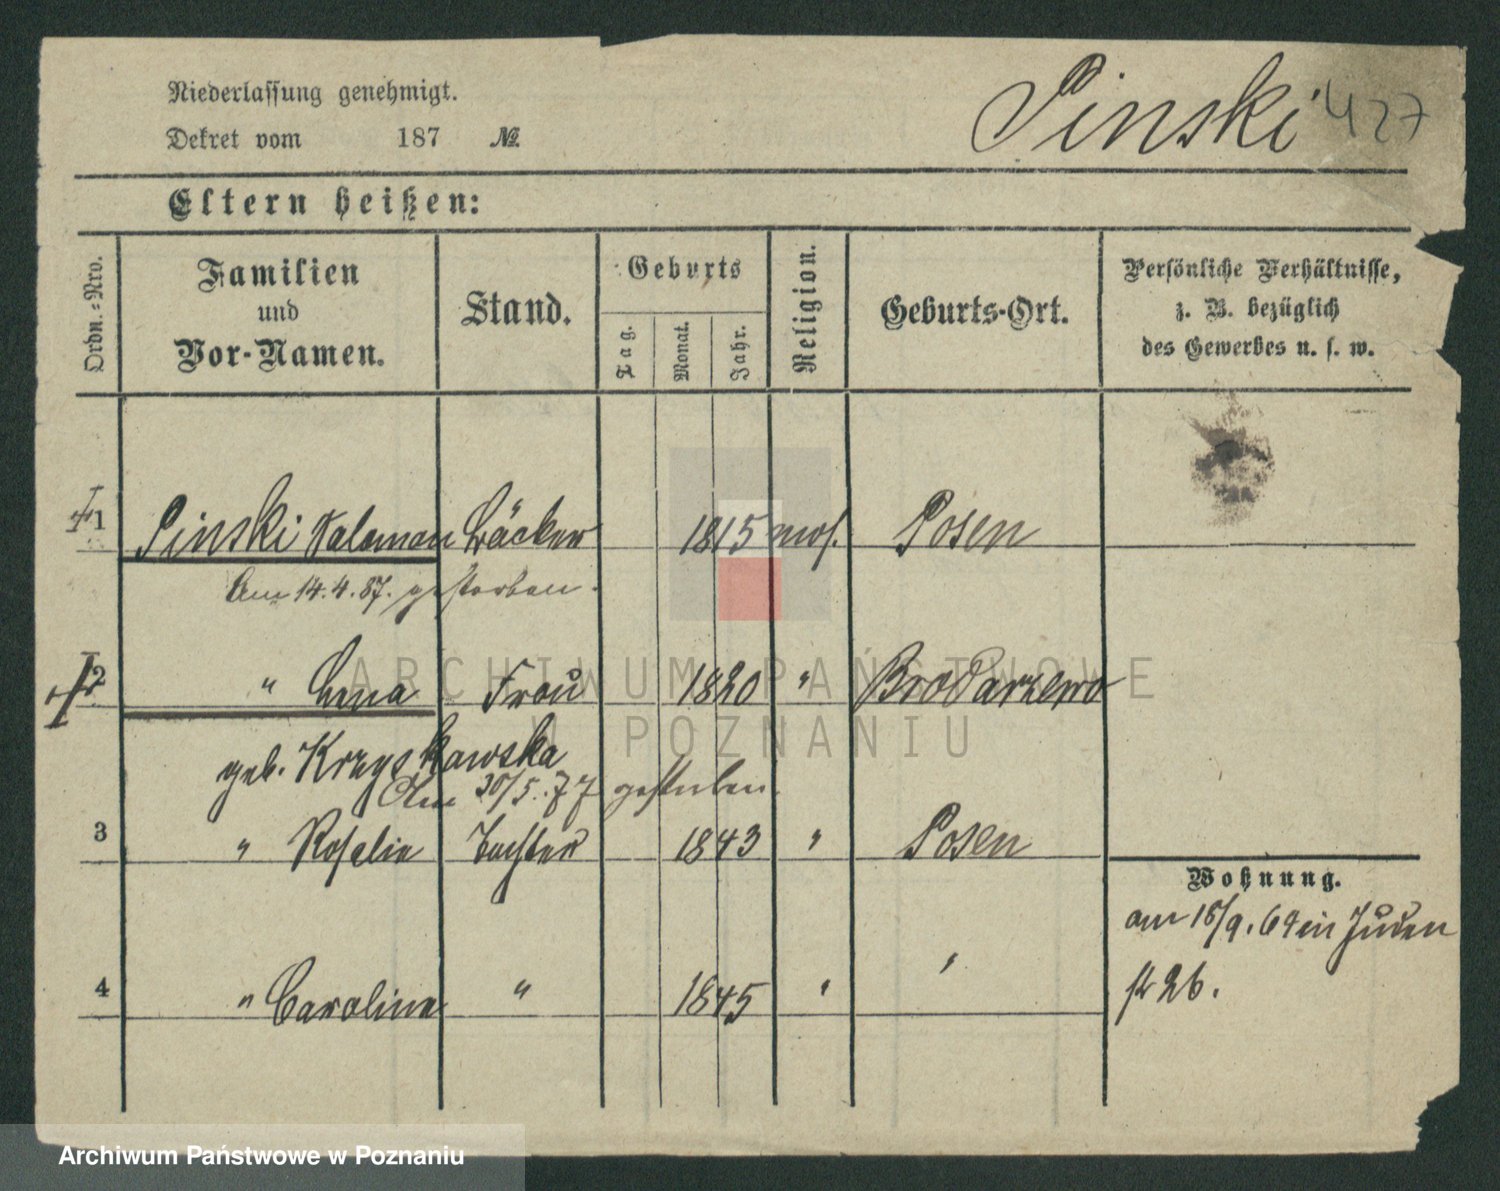 Niederlassung genehmigt.
Dekret vom 187 №
Pinski 427
Eltern heißen:
Ordn.-Nro.
Familien und Vor-Namen.
Stand.
Geburts
Tag.
Monat.
Jahr.
Religion.
Geburts-Ort.
Persönliche Verhältnisse,
z. B. bezüglich
des Gewerbes u. s. w.
1 Pinski Salomon Bäcker 1815 mos. Posen
Am 14.4.87. gestorben.
2 " Frau 1820 " Brodarzewo
geb. Krzyskawska
Am 30/5.77 gestorben.
3 " Rosalie Tochter 1843 " Posen
4 " Caroline " 1845 " "
Wohnung.
am 18/9.69 in Juden
str 26.
ARCHIWUM PAŃSTWOWE
W POZNANIU
Archiwum Państwowe w Poznaniu